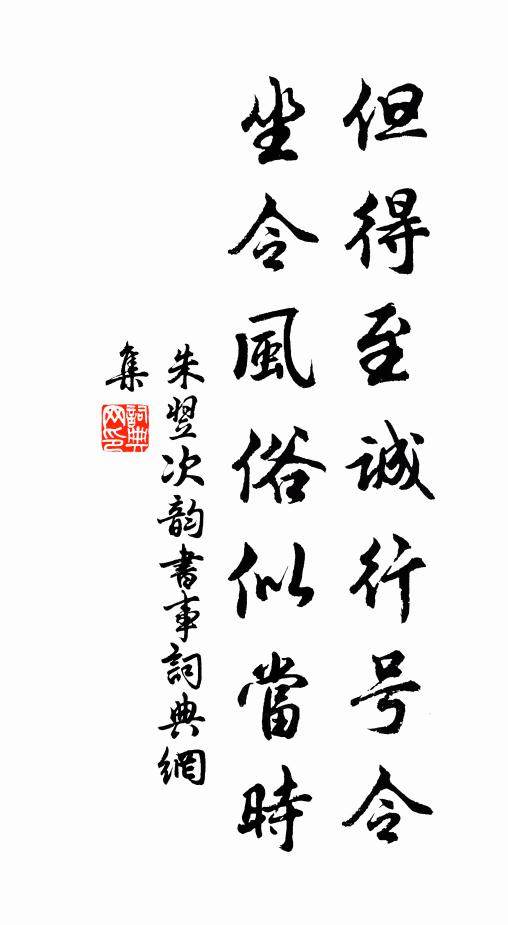 但得至誠行号令
坐令風俗似當時
朱翌次韵書事詞典網
集
詞典网印